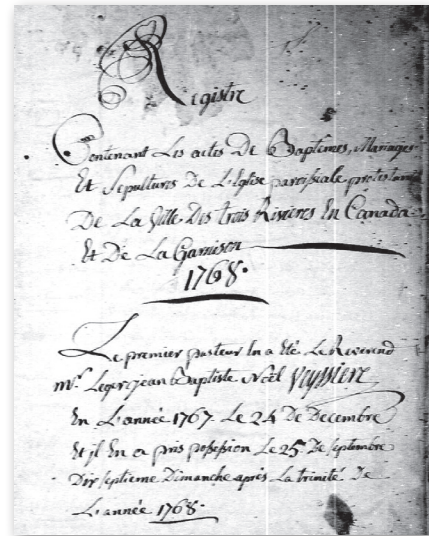 Registre
Contenant Les actes De Baptêmes, Mariages
Et Sepultures De L'Eglise paroissiale protestante
De La Ville Des trois Rivieres En Canada
Et De La Garnison
1768.
Le premier pasteur En a Eté Le Reverend
mr. Leger jean Baptiste Noël Veyssiere
En L'année 1767 Le 24 De Decembre
Et jl En a pris possession Le 25 De septembre
Dix septieme Dimanche après La trinité De
L'année 1768.